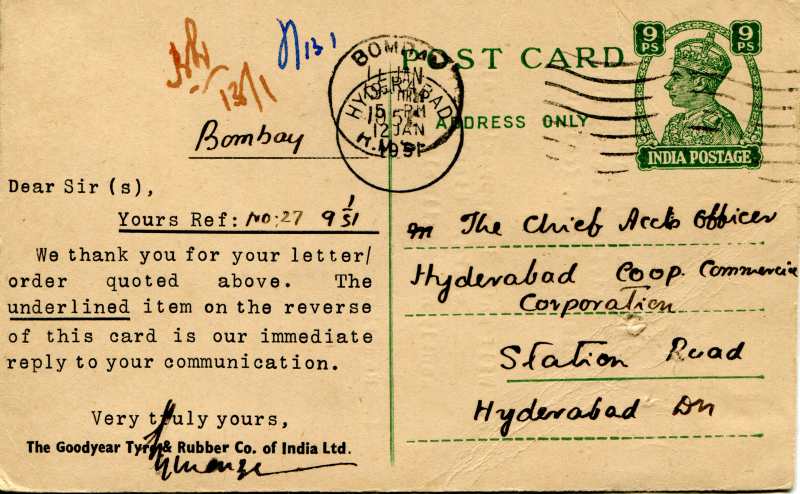 13/1
13 1
POST CARD
9 PS
9 PS
BOMBAY
11 JAN
HYDERABAD
5 PM
12 JAN
1951
ADDRESS ONLY
INDIA POSTAGE
Bombay
Dear Sir (s),
Yours Ref: No: 27 9 1/51
We thank you for your letter/
order quoted above. The
underlined item on the reverse
of this card is our immediate
reply to your communication.
Very truly yours,
The Goodyear Tyre & Rubber Co. of India Ltd.
The Chief Accts Officer
Hyderabad Coop. Commercia
Corporation
Station Road
Hyderabad Dn